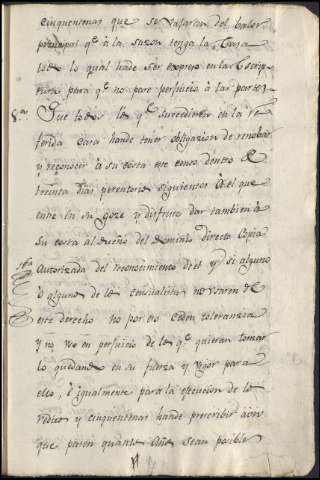 cinquentenas que se vajaran del balor
principal qe. à la sazon tenga la Casa
todo lo qual hade ser expreso en las Escrip
turas para qe. no pare perjuicio à las partes.
8.a Que todos los qe. sucedieren en la re
ferida casa hande tener obligazion de renobar
y reconocer à su costa este censo dentro de
treinta dias perentorios siguientes à el que
entre en su goze y disfruto dar tambien à
su costa al dueño del dominio directo Copia
Autorizada del reconocimiento y si alguno
ò algunos de los censualistas no usaren de
este derecho no por eso ceden toleranzia
y no en perjuicio de los qe. quieran tomar
lo quedando en su fuerza y vigor para
ello, è igualmente para la execucion de los
reditos y cinquentenas hande prescribir aun
que pasen quantos años sean posibles